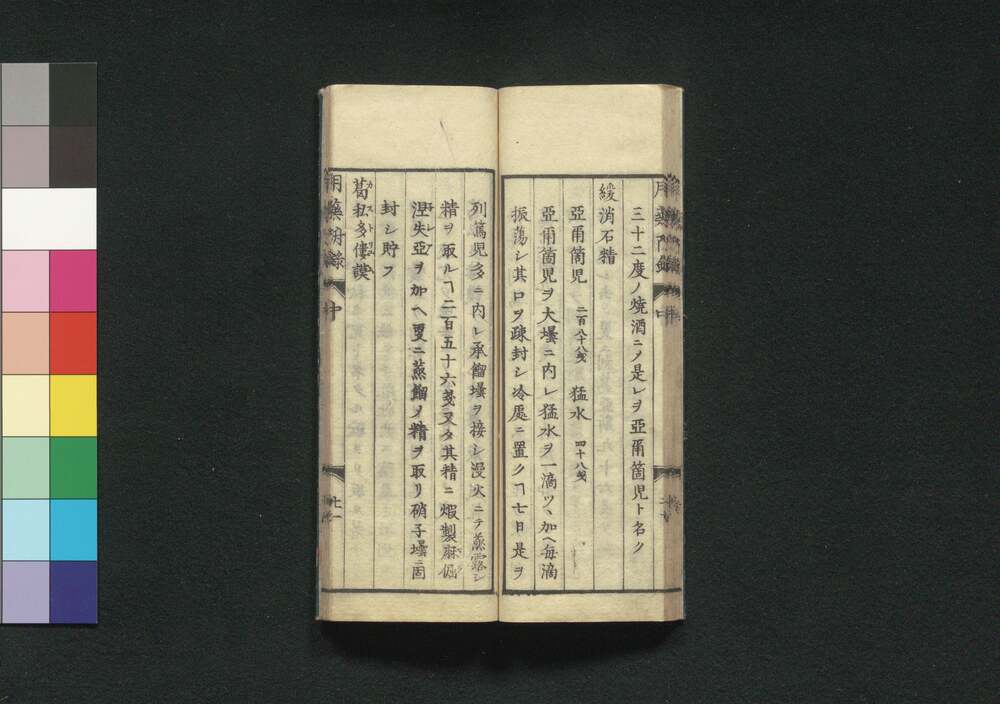 三十二度ノ焼酒ニノ是レヲ亞爾箇児ト名ク
緩消石精
亞爾箇児 二百八十八戔 猛水 四十八戔
亞爾箇児ヲ大壜ニ内レ猛水ヲ一滴ツヽ加ヘ毎滴
振蕩シ其口ヲ疎封シ冷處ニ置クヿ七日是ヲ
列篤児多ニ内レ承餾壜ヲ接シ漫火ニテ蒸露シ
精ヲ取ルヿ二百五十六戔又タ其精ニ煆製麻倔
涅失亞ヲ加ヘ更ニ蒸餾ノ精ヲ取リ硝子壜ニ固
封シ貯フ
葛私多僂謨
中